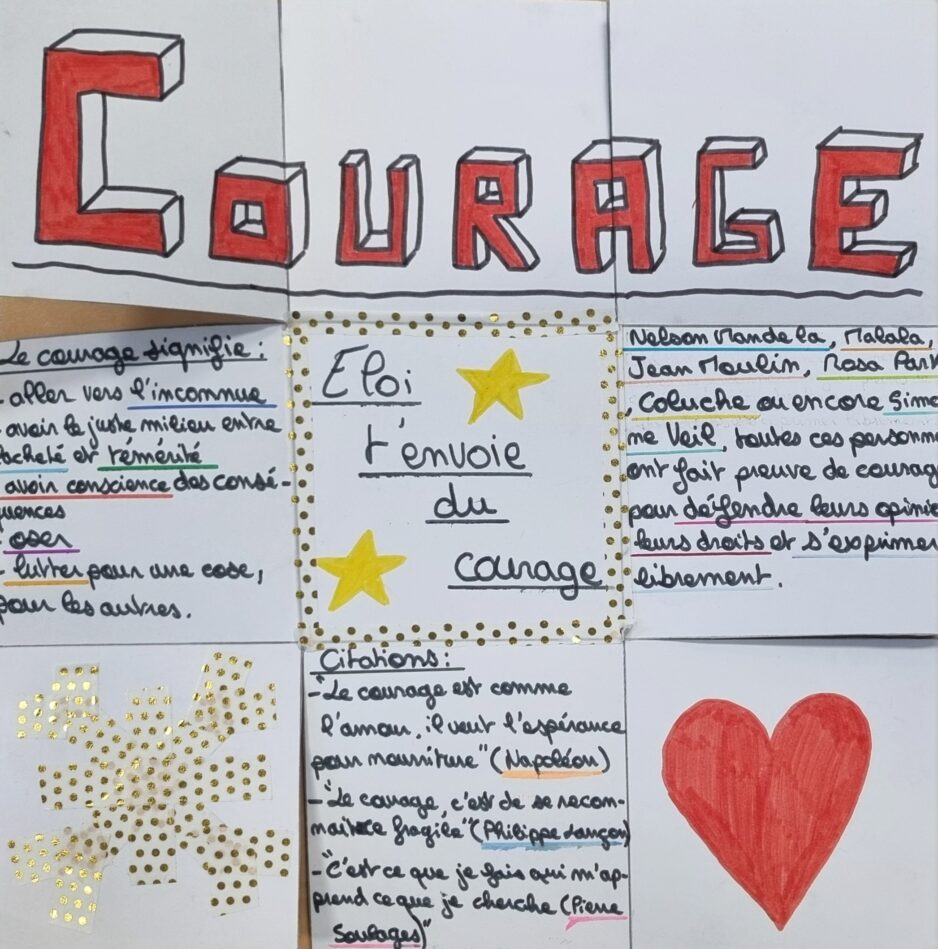 COURAGE
Le courage signifie :
- aller vers l'inconnue
- avoir le juste milieu entre
lacheté et témérité
avoir conscience des consé-
quences
- oser
- lutter pour une cose,
pour les autres.
Eloi
t'envoie
du
courage
Nelson Mandela, Malala,
Jean Moulin, Rosa Park
, Coluche ou encore Simo
ne Veil, toutes ces personne
ont fait preuve de courag
pour défendre leurs opinio
leurs droits et s'exprimer
librement.
Citations :
- "Le courage est comme
l'amour, il veut l'espérance
pour nourriture" (Napoléon)
- "Le courage, c'est de se recon-
naitre fragile" (Philippe Lançon)
- "C'est ce que je fais qui m'ap-
prend ce que je cherche (Pierre
Soulages)"